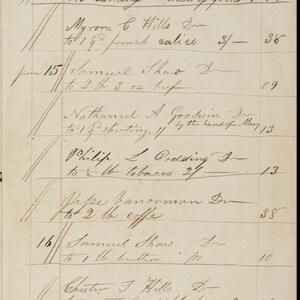 Myron C Hills Dr
to 1 yd french calico 3/– 38
June 15 Samuel Shaw Dr
to 2 lb 3 oz beef 09
Nathaniel A Goodwin Dr
to 1 yd shirting 1/ by the hand of Mary 13
Philip L Codding Dr
to ½ lb tobacco 2/ 13
Jesse Vanorman Dr
to 2 lb coffe 38
16 Samuel Shaw Dr
to 1 lb butter 10 10
Chester T Hills Dr